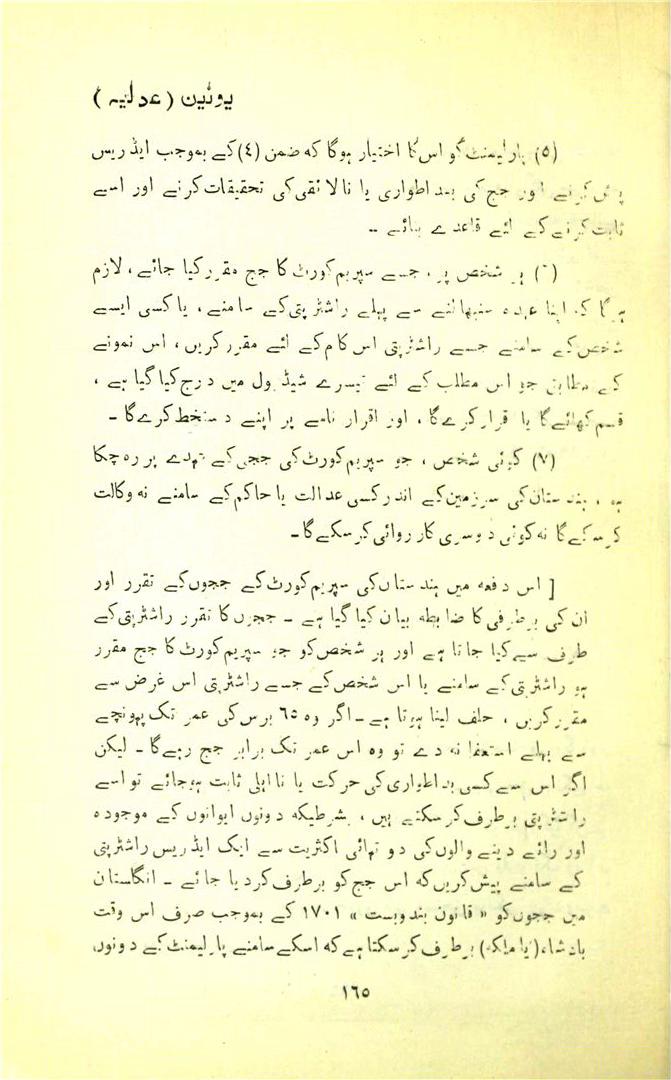 یونین (عدلیہ)
(٥) پارلیمنٹ کو اس کا اختیار ہوگا کہ ضمن (٤) کے بموجب ایڈریس
پیش کرنے اور جج کی بد اطواری یا نالائقی کی تحقیقات کرنے اور اسے
ثابت کرنے کے لئے قاعدے بنائے ۔۔
(٦) ہر شخص پر ، جسے سپریم کورٹ کا جج مقرر کیا جائے ، لازم
ہوگا کہ اپنا عہدہ سنبھالنے سے پہلے راشٹرپتی کے سامنے ، یا کسی ایسے
شخص کے سامنے جسے راشٹرپتی اس کام کے لئے مقرر کریں ، اس نمونے
کے مطابق جو اس مطلب کے لئے تیسرے شیڈیول میں درج کیا گیا ہے ،
قسم کھائے گا یا قرار کرے گا ، اور اقرار نامے پر اپنے دستخط کرے گا ۔
(٧) کوئی شخص ، جو سپریم کورٹ کی ججی کے عہدے پر رہ چکا
ہو ، ہندستان کی سرزمین کے اندر کسی عدالت یا حاکم کے سامنے نہ وکالت
کرسکے گا نہ کوئی دوسری کارروائی کرسکے گا ۔
[ اس دفعہ میں ہندستان کی سپریم کورٹ کے ججوں کے تقرر اور
ان کی برطرفی کا ضابطہ بیان کیا گیا ہے ۔ ججوں کا تقرر راشٹرپتی کے
طرف سے کیا جاتا ہے اور ہر شخص کو جو سپریم کورٹ کا جج مقرر
ہو راشٹرپتی کے سامنے یا اس شخص کے جسے راشٹرپتی اس غرض سے
مقرر کریں ، حلف لینا ہوتا ہے ۔ اگر وہ ٦٥ برس کی عمر تک پہونچنے
سے پہلے استعفا نہ دے تو وہ اس عمر تک برابر جج رہے گا ۔ لیکن
اگر اس سے کسی بد اطواری کی حرکت یا نااہلی ثابت ہوجائے تو اسے
راشٹرپتی برطرف کرسکتے ہیں ، بشرطیکہ دونوں ایوانوں کے موجودہ
اور رائے دینے والوں کی دو تہائی اکثریت سے ایک ایڈریس راشٹرپتی
کے سامنے پیش کریں کہ اس جج کو برطرف کردیا جائے ۔ انگلستان
میں ججوں کو « قانون بندوبست » ١٧٠١ کے بموجب صرف اس وقت
بادشاہ (یا ملکہ) برطرف کرسکتا ہے کہ اسکے سامنے پارلیمنٹ کے دونوں
١٦٥